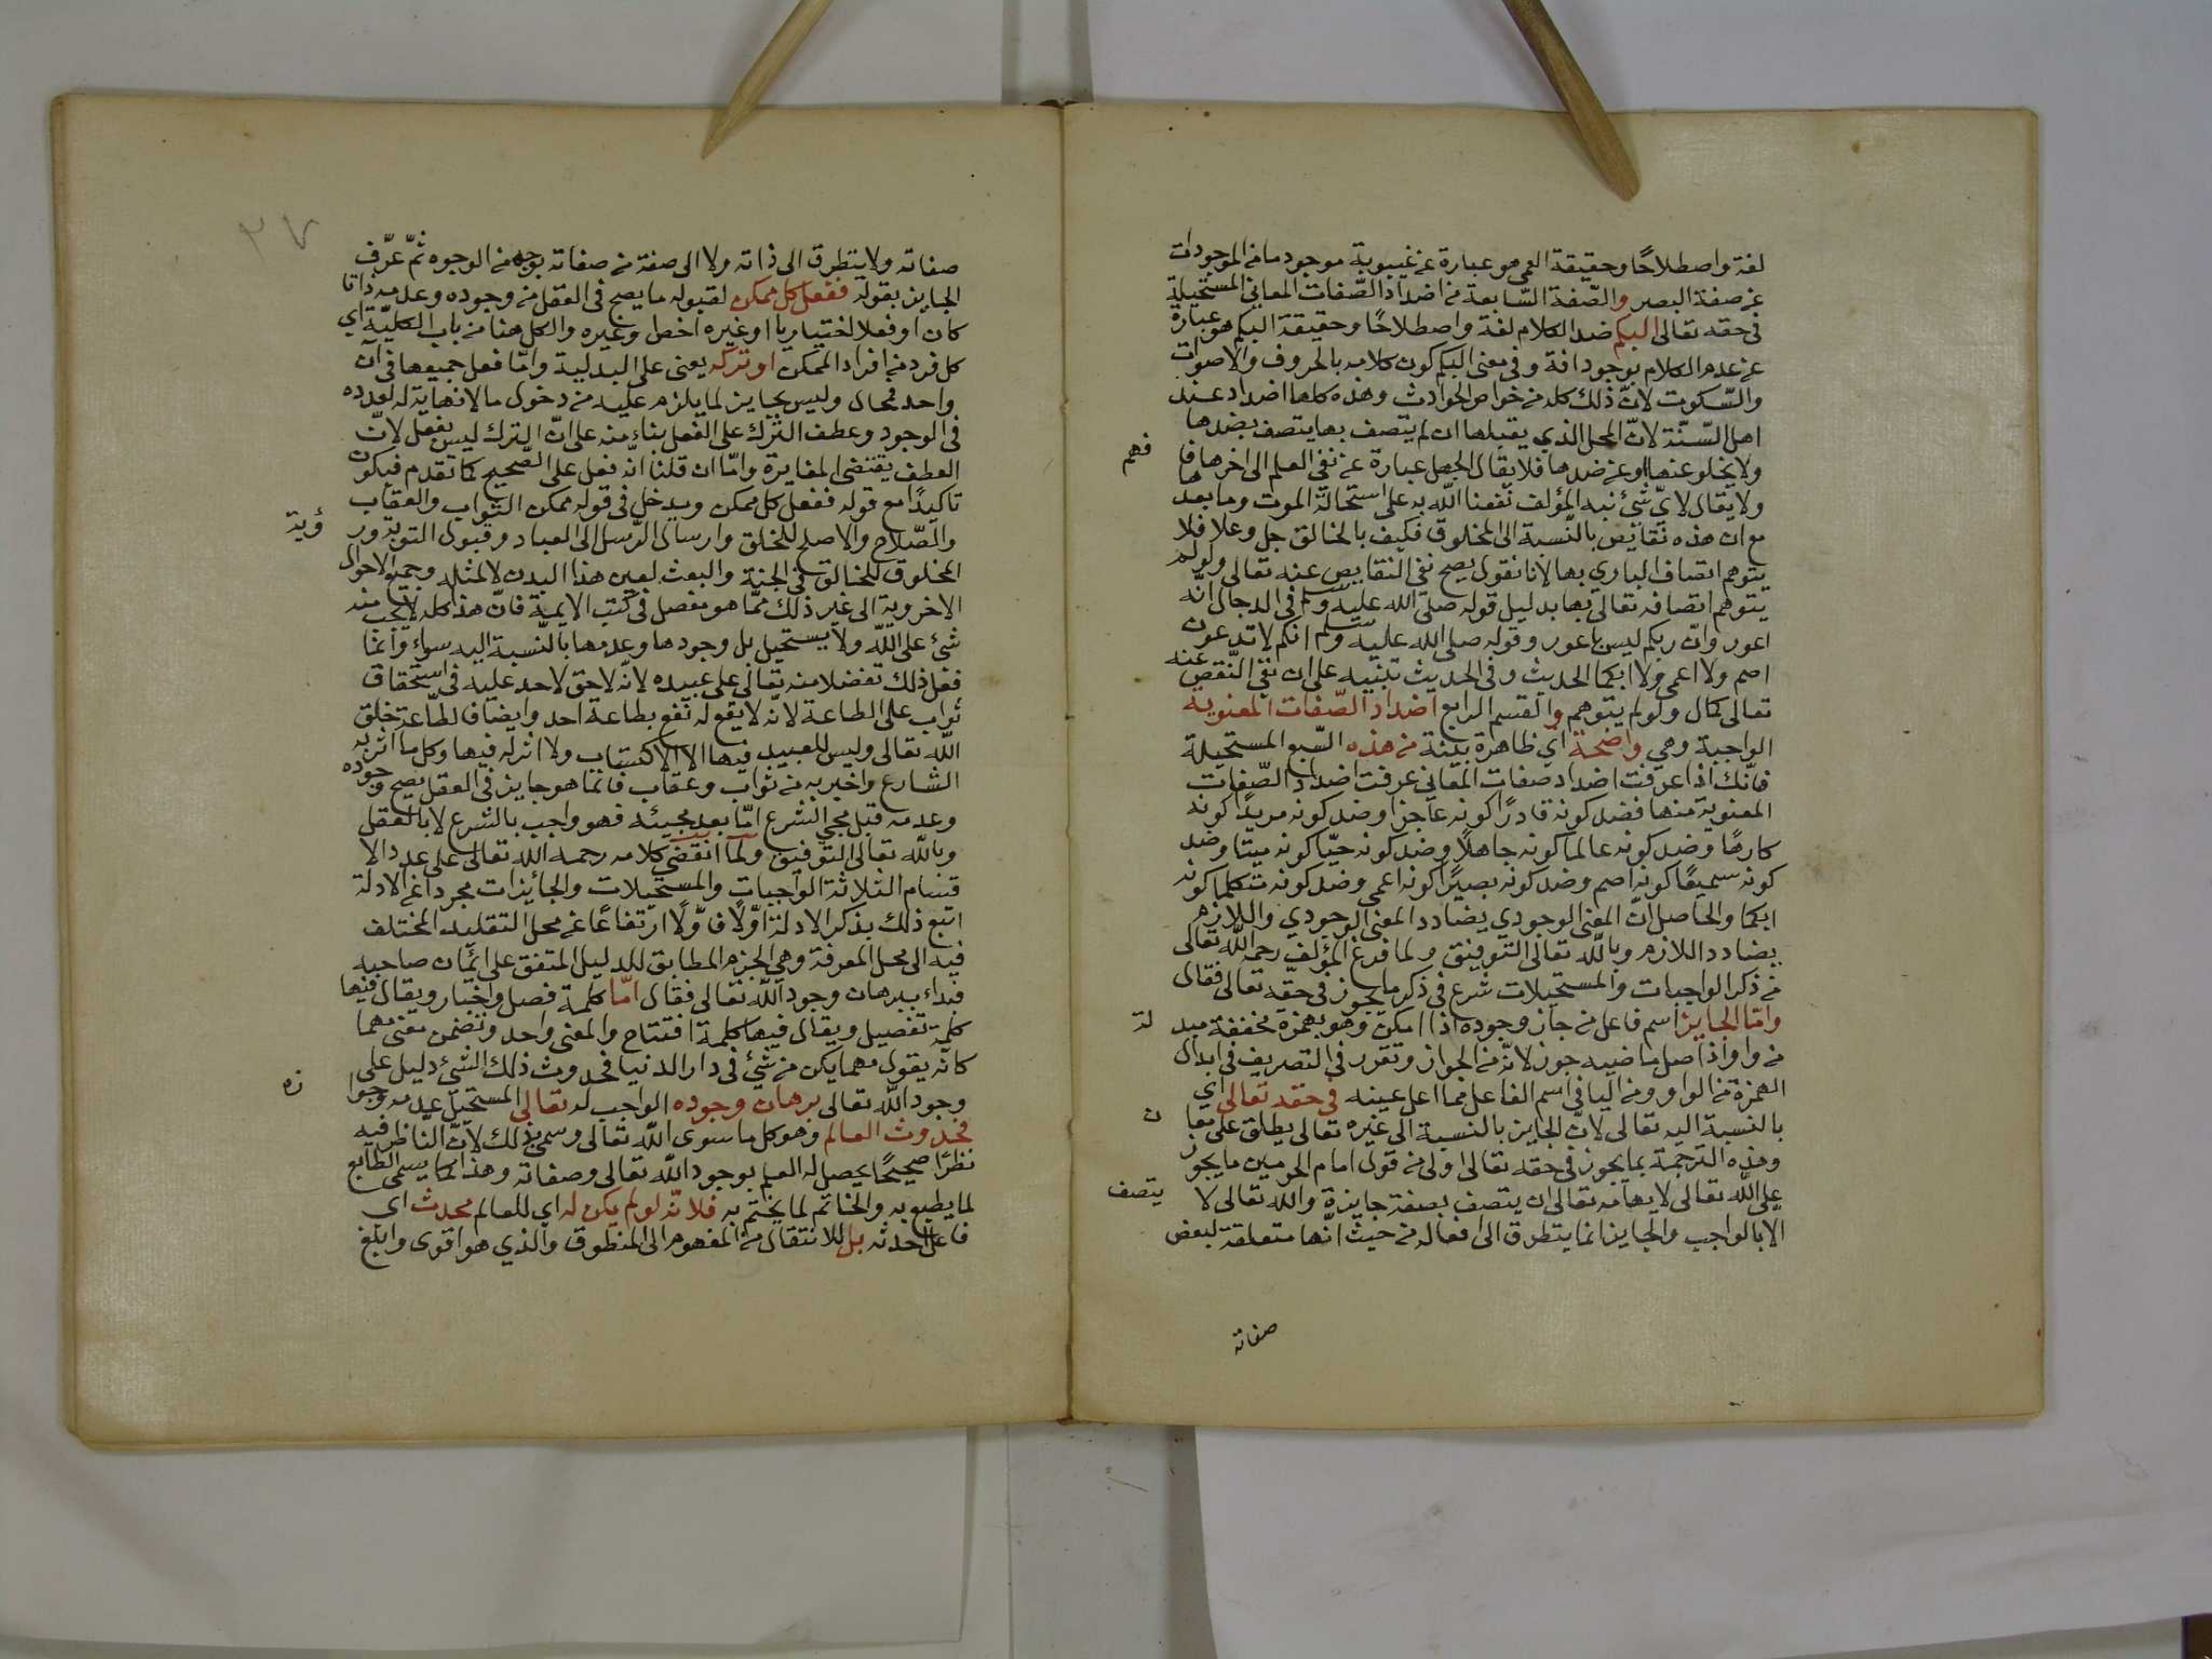 لغة واصطلاحًا وحقيقة العمى هو عبارة عن غيبوبة موجود ما من الموجودات
عن صفة البصر والصّفة السّابعة من اضداد الصّفات المعاني المستحيلة
في حقه تعالى البكم ضد الكلام لغة واصطلاحًا وحقيقة البكم هو عبارة
عن عدم الكلام بوجود افة وفي معنى البكم كون كلامه بالحروف والاصوات
والسّكوت لانّ ذلك كله من خواص الحوادث وهذه كلها اضداد عند
اهل السّنّة لانّ المحل الذي يقبلها ان لم يتصف بها يتصف بضدها
ولا يخلو عنها او عن ضدها فلا يقال الجهل عبارة عن نفي العلم الى اخرها فا فهم
ولا يقال لايّ شئ نبه المؤلف نفعنا اللّه به على استحالة الموت وما بعدها
مع ان هذه نقايض بالنّسبة الى المخلوق فكيف بالخالق جل وعلا فلا
يتوهم اتصاف الباري بها لانا نقول يصح نفي النقايص عنه تعالى ولو لم
يتوهم اتصافه تعالى بها بدليل قوله صلى الله عليه وسلم في الدجال انّه
اعور وانّ ربكم ليس باعور وقوله صلى الله عليه وسلم انكم لا تدعون
اصم ولا اعمى ولا ابكما الحديث وفي الحديث تنبيه على ان نفي النّقص عنه
تعالى كمال ولو لم يتوهم والقسم الرابع اضداد الصّفات المعنوية
الواجبة وهي واضحة اي ظاهرة بيّنة من هذه السّبع المستحيلة
فانّك اذا عرفت اضداد صفات المعاني عرفت اضداد الصّفات
المعنوية منها فضد كونه قادرًا كونه عاجزا وضد كونه مريدًا كونه
كارهًا وضد كونه عالما كونه جاهلًا وضد كونه حيّا كونه ميتا وضد
كونه سميعًا كونه اصم وضد كونه بصيرًا كونه اعمى وضد كونه متكلما كونه
ابكما والحاصل انّ المعنى الوجودي يضادد المعنى الوجودي واللازم
يضادد اللازم وباللّه تعالى التوفيق ولما فرغ المؤلف رحمه اللّه تعالى
من ذكر الواجبات والمستحيلات شرع في ذكر ما يجوز في حقه تعالى فقال
وامّا الجايز اسم فاعل من جاز وجوده اذا امكن وهو بهمزة مخففة مبد لة
من واو اذ اصل ماضيه جوز لانّه من الجواز وتقرر في التصريف في ابدال
الهمزة من الواو ومن اليا في اسم الفاعل مما اعل عينه في حقه تعالى اي
بالنسبة اليه تعالى لانّ الجايز بالنسبة الى غيره تعالى يطلق على معا ن
وهذه الترجمة بما يجوز في حقه تعالى اولى من قول امام الحرمين ما يجوز
على اللّه تعالى لايهامه تعالى ان يتصف بصفة جايزة والله تعالى لا يتصف
الا بالواجب والجايز انما يتطرق الى افعاله من حيث انّها متعلقة لبعض
صفاته
٣٧
صفاته ولا يتطرق الى ذاته ولا الى صفة من صفاته بوجه من الوجوه ثمّ عرّف
الجايز بقوله ففعل كل ممكن لقبوله ما يصح في العقل من وجوده وعدمه ذاتا
كان او فعلا اختياريا او غيره اخص او غيره والكل هنا من باب الكليّة اي
كل فرد من افراد الممكن او تركه يعني على البدلية وامّا فعل جميعها في آن
واحد فمحال وليس بجايز لما يلزم عليه من دخول ما لا نهاية له لعدده
في الوجود وعطف الترك على الفعل بناء منه على انّ الترك ليس بفعل لانّ
العطف يقتضي المغايرة وامّا ان قلنا انّه فعل على الصّحيح كما تقدم فيكون
تاكيدًا مع قوله ففعل كل ممكن ويدخل في قوله ممكن الثواب والعقاب
والصّلاح والاصلح للخلق وارسال الرّسل الى العباد وقبول التوبة ور ؤية
المخلوق للخالق في الجنة والبعث لعين هذا البدن لا لمثله وجميع الاحوال
الاخروية الى غير ذلك ممّا هو مفصل في كتب الايمة فانّ هذا كله لا يجب منه
شئ على اللّه ولا يستحيل بل وجودها وعدمها بالنّسبة اليه سواء وانّما
فعل ذلك تفضلا منه تعالى على عبيده لانّه لا حق لاحد عليه في استحقاق
ثواب على الطاعة لانّه لا يقع له نفع بطاعة احد وايضا فالطّاعة خلق
اللّه تعالى وليس للعبيد فيها الا الاكتساب ولا اثر له فيها وكل ما اثر به
الشارع واخبر به من ثواب وعقاب فانّما هو جايز في العقل يصح وجوده
وعدمه قبل مجئ الشرع امّا بعد مجيئه فهو واجب بالشرع لا بالعقل
وباللّه تعالى التوفيق ولما انقضي كلامه رحمه الله تعالى على عدد الا
قسام الثلاثة الواجبات والمستحيلات والجائزات مجردا عن الادلة
اتبع ذلك بذكر الادلة اوّلًا فاوّلًا ارتفاعًا عن محل التقليد المختلف
فيه الى محل المعرفة وهي الجزم المطابق للدليل المتفق على ايمان صاحبه
فبداء ببرهان وجود اللّه تعالى فقال امّا كلمة فصل واخبار ويقال فيها
كلمة تفصيل ويقال فيها كلمة افتتاح والمعنى واحد وتضمن معنى مهما
كانّه يقول مهما يكن من شئ في دار الدنيا فحدوث ذلك الشئ دليل على
وجود اللّه تعالى برهان وجوده الواجب له تعالى المستحيل عدمه وجوا زه
فحدوث العالم وهو كل ما سوى اللّه تعالى وسمي بذلك لانّ النّاظر فيه
نظرًا صحيحًا يحصل له العلم بوجود اللّه تعالى وصفاته وهذا كما يسمى الطابع
لما يطبع به والخاتم لما يختم به فلانّه لو لم يكن له اي للعالم محدث اي
فاعل احدثه بل للانتقال من المفهوم الى المنطوق والذي هو اقوى وابلغ